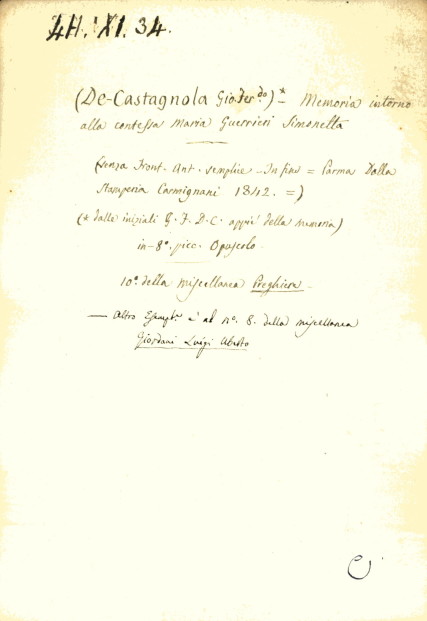 4H. XI. 34.
(De-Castagnola Gio. Fer.do)* - Memoria intorno
alla contessa Maria Guerrieri Simonetta
(senza Front. Ant. semplice - In fine = Parma Dalla
Stamperia Carmignani 1842. =)
(* dalle iniziali G. F. D. C. appie' della Memoria)
in-8°. picc. Opuscolo.
10°. della Miscellanea Preghiera -
— Altro Esempl. è al n°. 8. della Miscellanea
Giordani Luigi